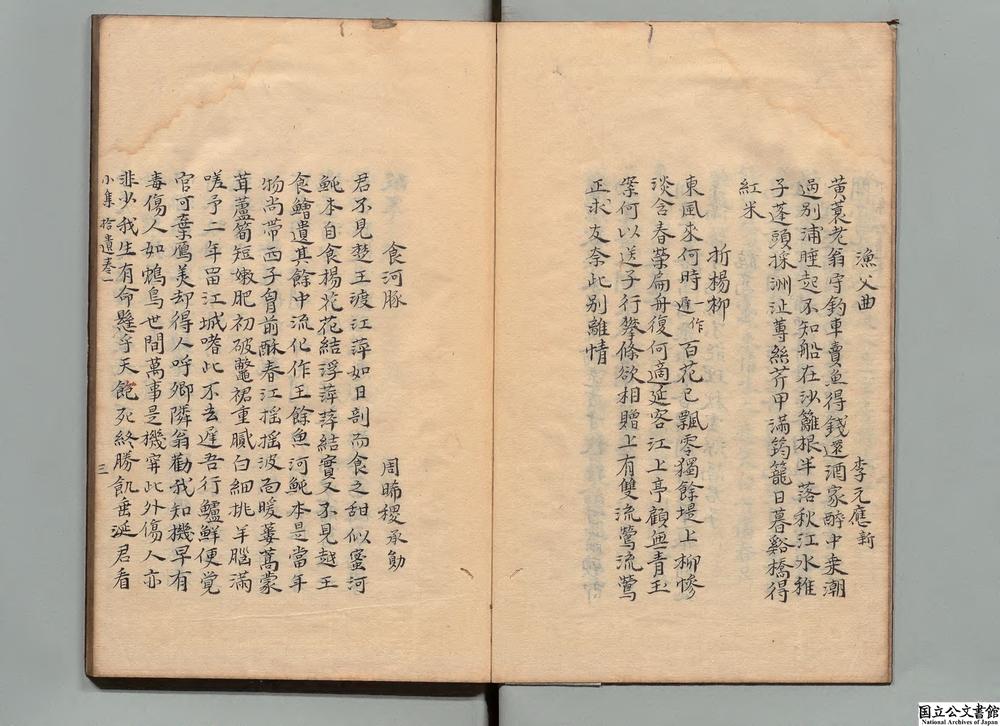 漁父曲
李元應新
黃蓑老翁守釣車賣魚得錢還酒家醉中乗潮
過別浦睡起不知船在沙籬根半落秋江水稚
子蓬頭採洲沚蓴絲芥甲滿筠籠日暮谿橋得
紅米
折楊柳
東風來何時一作遲百花已飄零獨餘堤上柳慘
淡含春榮扁舟復何適延客江上亭顧無青玉
案何以送子行攀條欲相贈上有雙流鶯流鶯
正求友奈此別離情
食河豚
周晞稷承勛
君不見楚王渡江萍如日剖而食之甜似蜜河
魨本自食楊花花結浮萍萍結實又不見越王
食鱠遺其餘中流化作王餘魚河魨本是當年
物尚帶西子胷前酥春江揺揺波面暖蔞蒿蒙
茸蘆筍短嫩肥初破鼈裙重膩白細挑羊腦滿
嗟予二年留江城嗜此不去遲吾行鱸鮮便覺
官可棄鴈美却得人呼卿隣翁勸我知機早有
毒傷人如鴆鳥世間萬事是機穽此外傷人亦
非少我生有命懸乎天飽死終勝飢垂涎君看
小集拾遺卷一
三
国立公文書館
National Archives of Japan